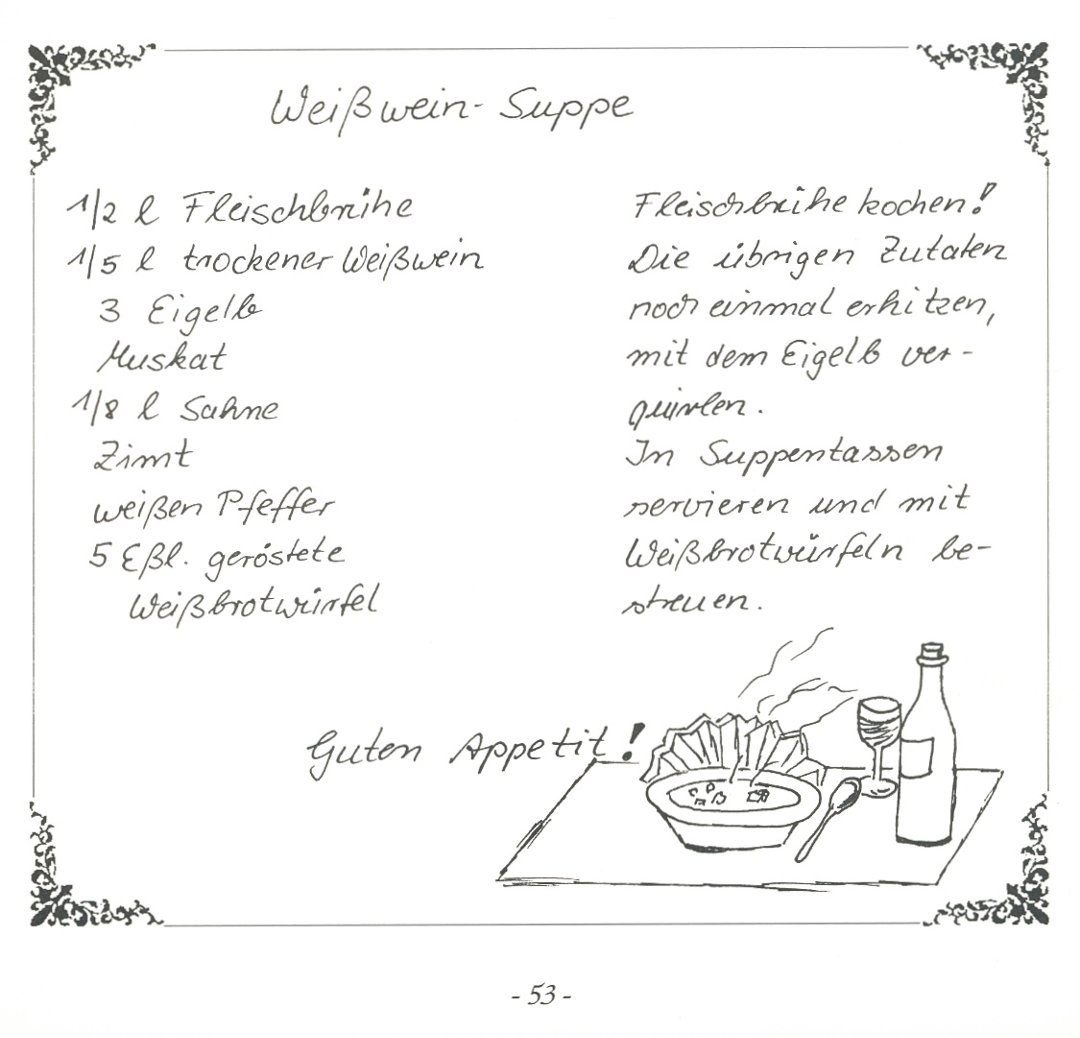 Weißwein-Suppe
1/2 l Fleischbrühe
1/5 l trockener Weißwein
3 Eigelb
Muskat
1/8 l Sahne
Zimt
weißen Pfeffer
5 Eßl. geröstete
Weißbrotwürfel
Fleischbrühe kochen!
Die übrigen Zutaten
noch einmal erhitzen,
mit dem Eigelb ver-
quirlen.
In Suppentassen
servieren und mit
Weißbrotwürfeln be-
streuen.
Guten Appetit!
- 53 -